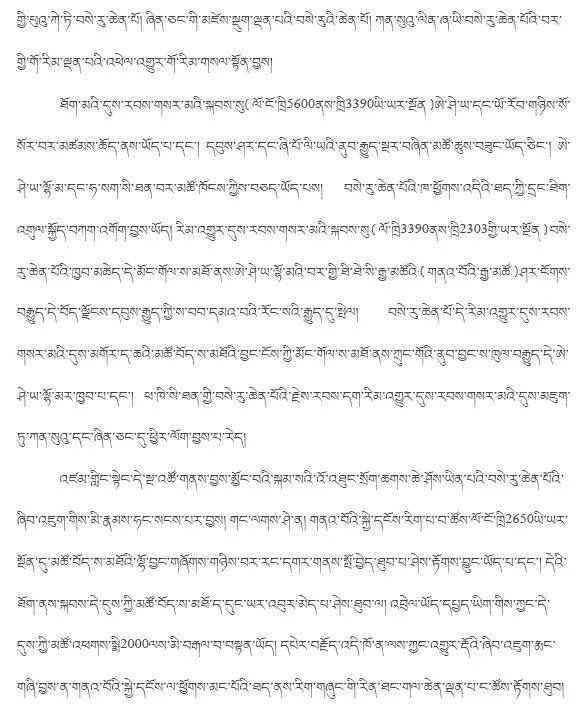 གྱི་ཕུའུ་ཀེ་ཏི་བསེ་རུ་ཆེན་པོ། ཞིན་ཅང་གི་མཛེས་སྡུག་ལྡན་པའི་བསེ་རུའི་ཆེན་པོ། ཀན་སུའུ་ལིན་ཞ་ཡི་བསེ་རུ་ཆེན་པོའི་བར་
གྱི་གོ་རིམ་ལྡན་པའི་འཕེལ་འགྱུར་གོ་རིམ་གསལ་སྟོན་བྱས།
ཐོག་མའི་དུས་རབས་གསར་མའི་སྐབས་སུ( ལོ་ངོ་ཁྲི5600ནས་ཁྲི3390ཡི་ཡར་སྔོན )ཨེ་ཤེ་ཡ་དང་ཡོ་རོབ་གཉིས་སོ་
སོར་བར་མཚམས་ཆོད་ནས་ཡོད་པ་དང་། དབུས་ཤར་དང་ཞི་པོ་ལི་ཡའི་ནུབ་རྒྱུད་སྔར་བཞིན་མཚོ་ཆུས་བཟུང་ཡོད་ཅིང་། ཨེ་
ཤེ་ཡ་ལྷོ་མ་དང་ཧ་སག་སི་ཐན་བར་མཚོ་ཁོངས་ཀྱིས་བཅད་ཡོད་པས། བསེ་རུ་ཆེན་པོའི་ཁ་ཕྱོགས་འདིའི་ཐད་ཀྱི་དྲང་ཐིག་
འགུལ་སྐྱོད་བཀག་འགོག་བྱས་ཡོད། རིམ་འགྱུར་དུས་རབས་གསར་མའི་སྐབས་སུ( ལོ་ཁྲི3390ནས་ཁྲི2303གྱི་ཡར་སྔོན )བསེ་
རུ་ཆེན་པོའི་ཁྱབ་མཆེད་དེ་མོང་གོལ་ས་མཐོ་ནས་ཨེ་ཤེ་ཡ་ལྷོ་མའི་བར་གྱི་ཐི་ཐེ་སི་རྒྱ་མཚོའི( གནའ་བོའི་རྒྱ་མཚོ )ཤར་ངོགས་
བརྒྱུད་དེ་བོད་ལྗོངས་དབུས་རྒྱུད་ཀྱི་ས་བབ་དམའ་བའི་རོང་སའི་རྒྱུད་དུ་སླེལ། བསེ་རུ་ཆེན་པོ་དེ་རིམ་འགྱུར་དུས་རབས་
གསར་མའི་དུས་མགོར་ད་ཆའི་མཚོ་བོད་ས་མཐོའི་བྱང་ངོས་ཀྱི་མོང་གོལ་ས་མཐོ་ནས་ཀྲུང་གོའི་ནུབ་བྱང་ས་ཁུལ་བརྒྱུད་དེ་ཨེ་
ཤེ་ཡ་ལྷོ་མར་ཁྱབ་པ་དང་། ཕ་ཁི་སི་ཐན་གྱི་བསེ་རུ་ཆེན་པོའི་རྗེས་རབས་དག་རིམ་འགྱུར་དུས་རབས་གསར་མའི་དུས་མཇུག་
ཏུ་ཀན་སུའུ་དང་ཞིན་ཅང་དུ་ཕྱིར་ལོག་བྱས་པ་རེད།
འཛམ་གླིང་སྟེང་དེ་སྔ་འཚོ་གནས་བྱས་མྱོང་བའི་སྐམ་སའི་འོ་འཐུང་སྲོག་ཆགས་ཆེ་ཤོས་ཡིན་པའི་བསེ་རུ་ཆེན་པོའི་
ཞིབ་འཇུག་གིས་མི་རྣམས་ཧང་སངས་པར་བྱས། གང་ལགས་ཤེ་ན། གནའ་བོའི་སྐྱེ་དངོས་རིག་པ་བ་ཚོས་ལོ་ངོ་ཁྲི2650ཡི་ཡར་
སྔོན་དུ་མཚོ་བོད་ས་མཐོའི་ལྷོ་བྱང་གཞོགས་གཉིས་བར་རང་དགར་གནས་སྤོ་བྱེད་ཐུབ་པ་ཤེས་རྟོགས་བྱུང་ཡོད་པ་དང་། དེའི་
ཐོག་ནས་སྐབས་དེ་དུས་ཀྱི་མཚོ་བོད་ས་མཐོ་ད་དུང་ཡར་འབུར་མེད་པ་ཤེས་ཐུབ་ལ། འབྲེལ་ཡོད་དཔྱད་ཡིག་གིས་ཀྱང་དེ་
དུས་ཀྱི་མཚོ་འཕགས་སྨི2000ལས་མི་བརྒལ་བ་བསྟན་ཡོད། དཔེར་བརྗོད་འདི་ཁོ་ན་ལས་ཀྱང་འགྱུར་རྡོའི་ཞིབ་འཇུག་རྨང་
གཞི་བྱས་ན་གནའ་བོའི་སྐྱེ་དངོས་ལ་ཕྱོགས་མང་པོའི་ཐད་ནས་རིག་གཞུང་གི་རིན་ཐང་གལ་ཆེན་ལྡན་པ་ང་ཚོས་རྟོགས་ཐུབ།